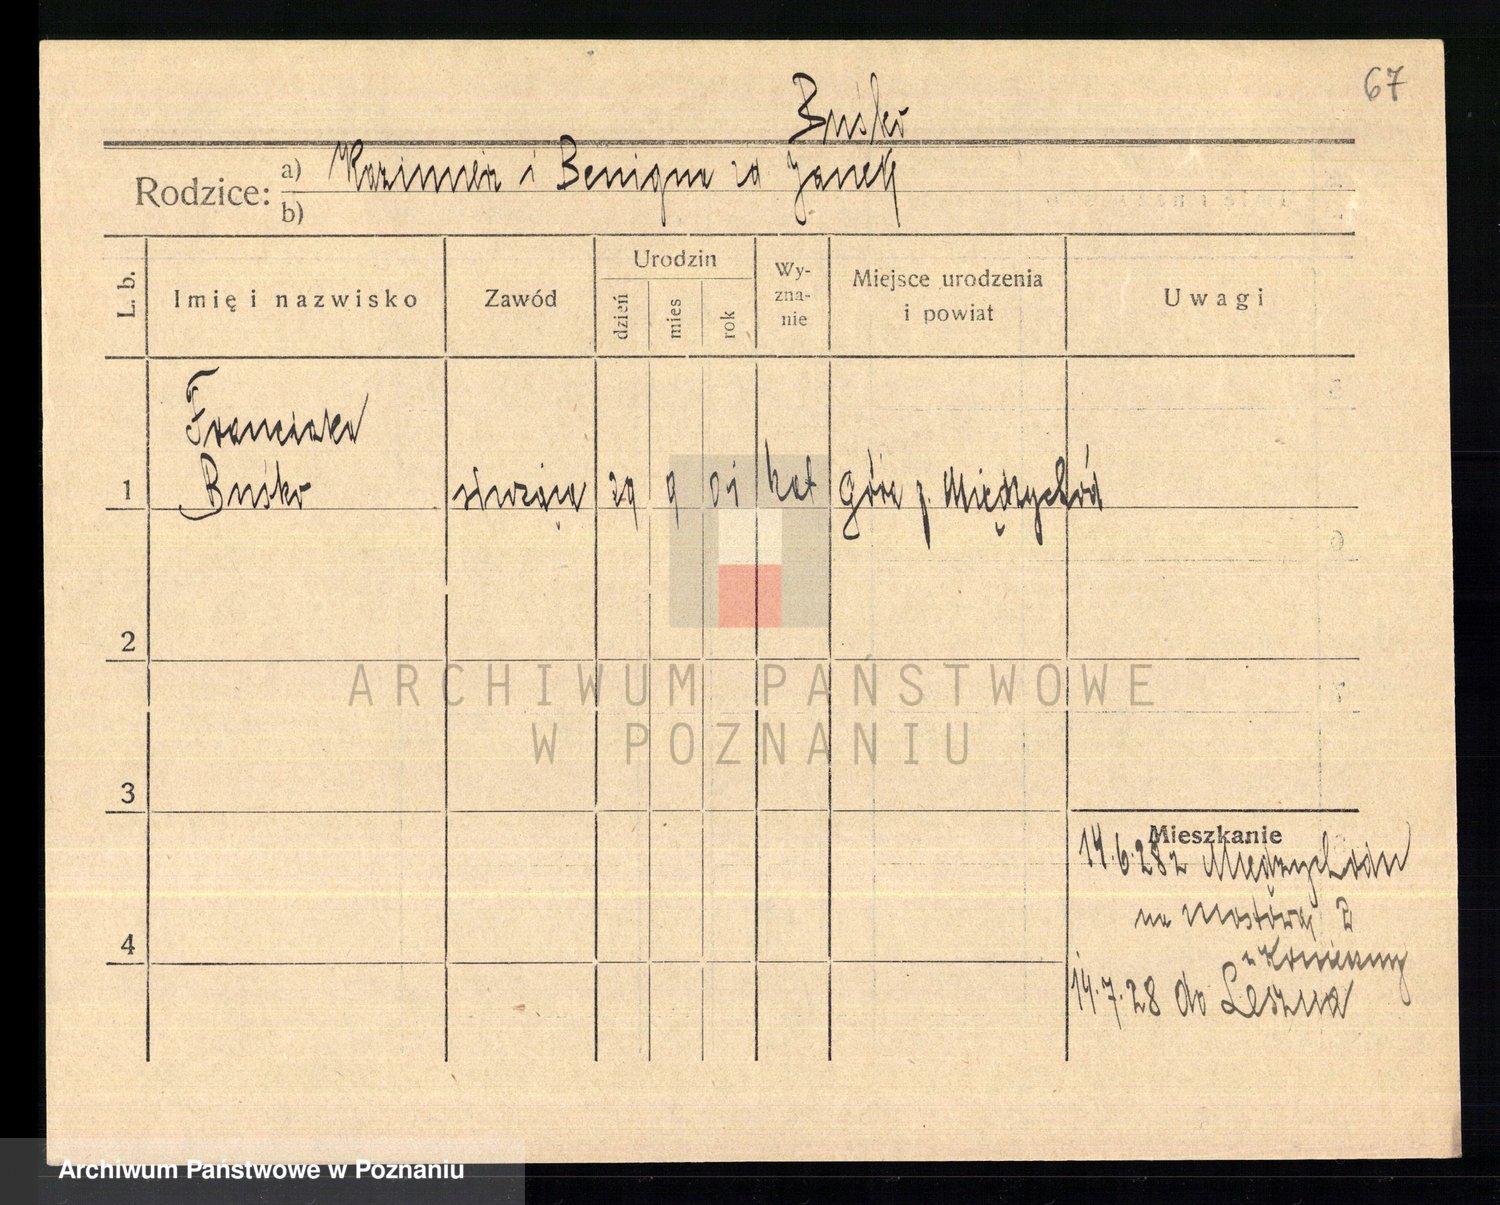 67
Buśko
Rodzice: a) Kazimierz i Benigna zd Janek
b)
L. b.
Imię i nazwisko
Zawód
Urodzin
dzień
mies
rok
Wy-
zna-
nie
Miejsce urodzenia
i powiat
Uwagi
Franciszka
1 Buśko służąca 29 9 01 kat Góra p. Międzychód
2
3
4
Mieszkanie
14.6.28 z Międzychodu
na Mostowej 2
14.7.28 do Leszna
ARCHIWUM PAŃSTWOWE
W POZNANIU
Archiwum Państwowe w Poznaniu